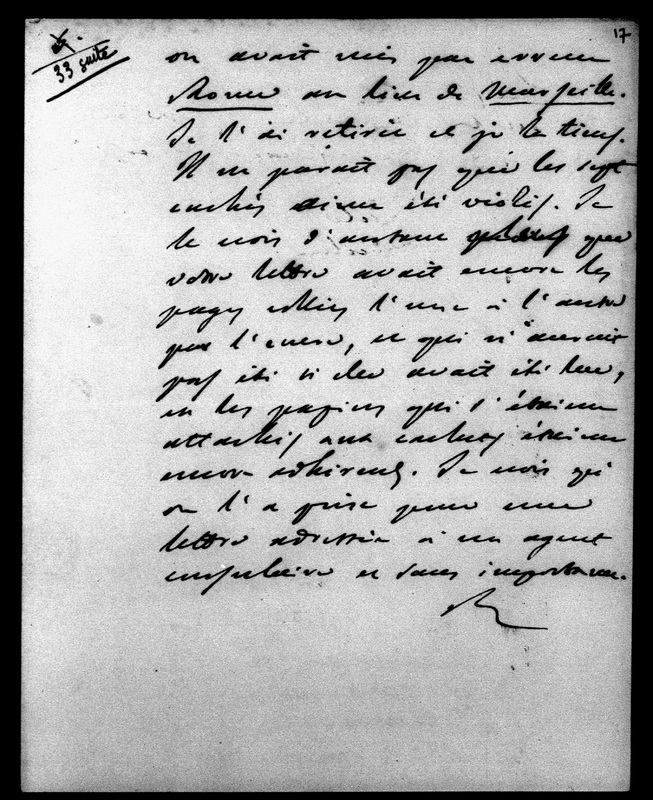 17
33 suite
on avait mis par erreur
Rome au lieu de Marseille.
Je l'ai retirée et je la tiens.
Il ne paraît pas que les sept
cachés aient été violés. Je
le crois d'autant plus que
votre lettre avait encore les
pages collées l'une à l'autre
par l'encre, ce qui n'aurait
pas été si elle avait été lue,
et les papiers qui s'étaient
attachés aux cachets étaient
encore adhérents. Je crois qu'
on l'a prise pour une
lettre adressée à un agent
consulaire et sans importance.